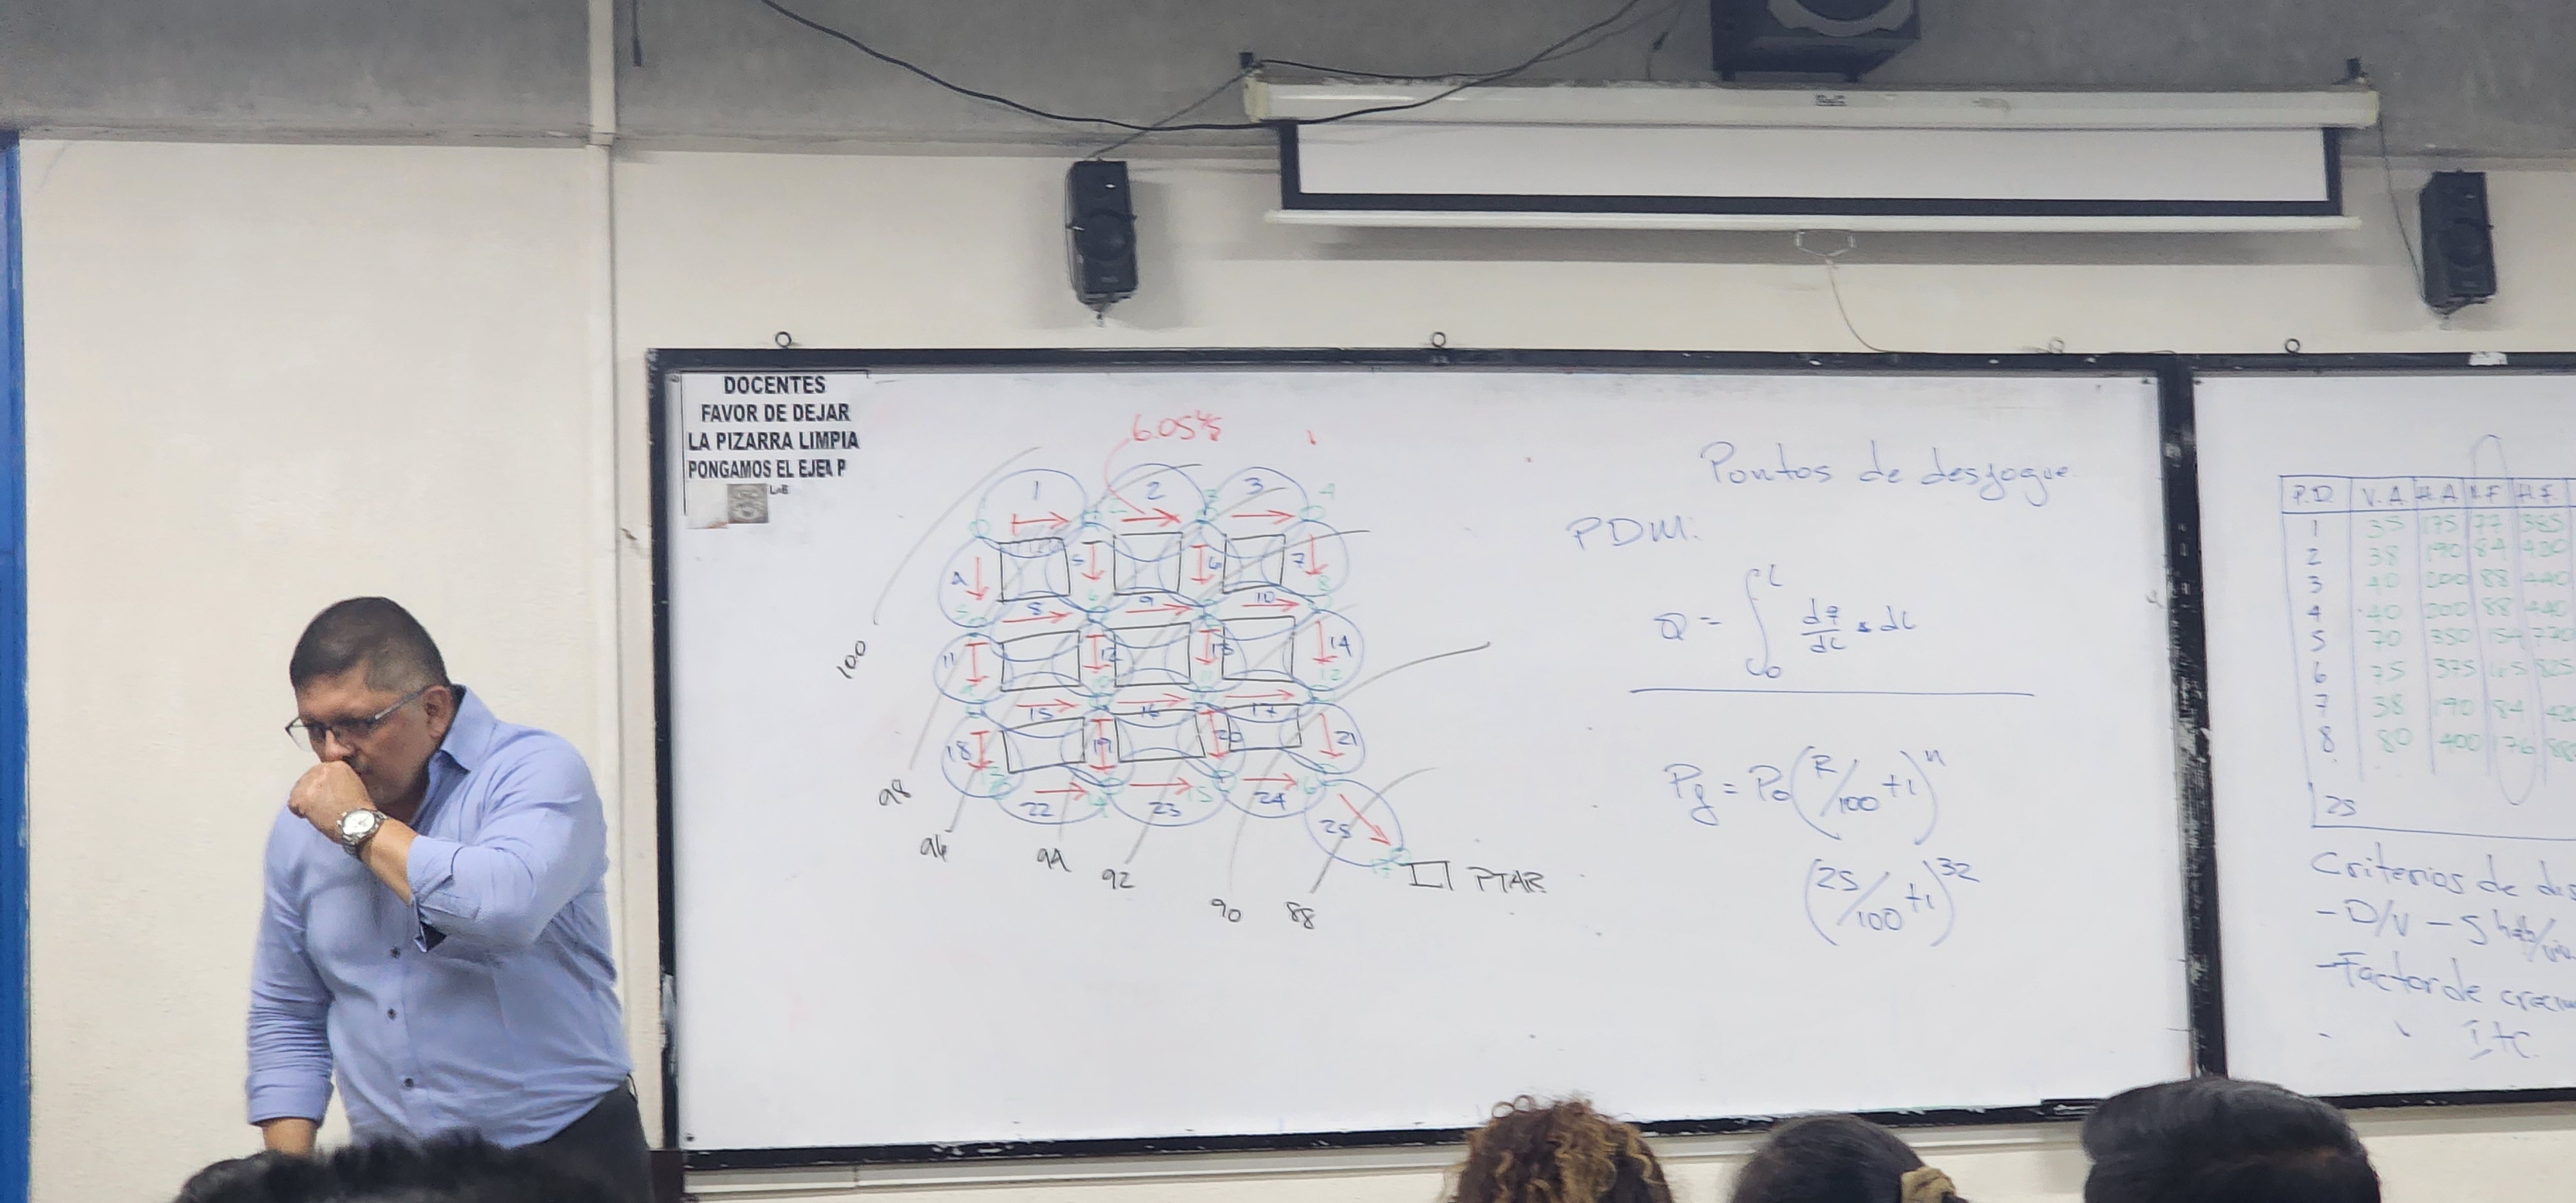 DOCENTES
FAVOR DE DEJAR
LA PIZARRA LIMPIA
PONGAMOS EL EJEM P
6.05
1 2 3
4 5 6 7
8 9 10
11 12 13 14
15 16 17
18 19 20 21
22 23 24
25
100
98
96
94
92
90
88
PTAR
Puntos de desfogue
PDM:
Q = ∫ L 0 dq/dL * dL
Pf = Po (R/100 +1)^n
(25/100 +1)^32
P.D. V.A H.A V.F H.F
1 35 175 77 385
2 38 190 84 420
3 40 200 88 440
4 40 200 88 440
5 70 350 154 770
6 75 375 165 825
7 38 190 84
8 80 400 176
25
Criterios de
- D/V - 5 hab/
- Factor de